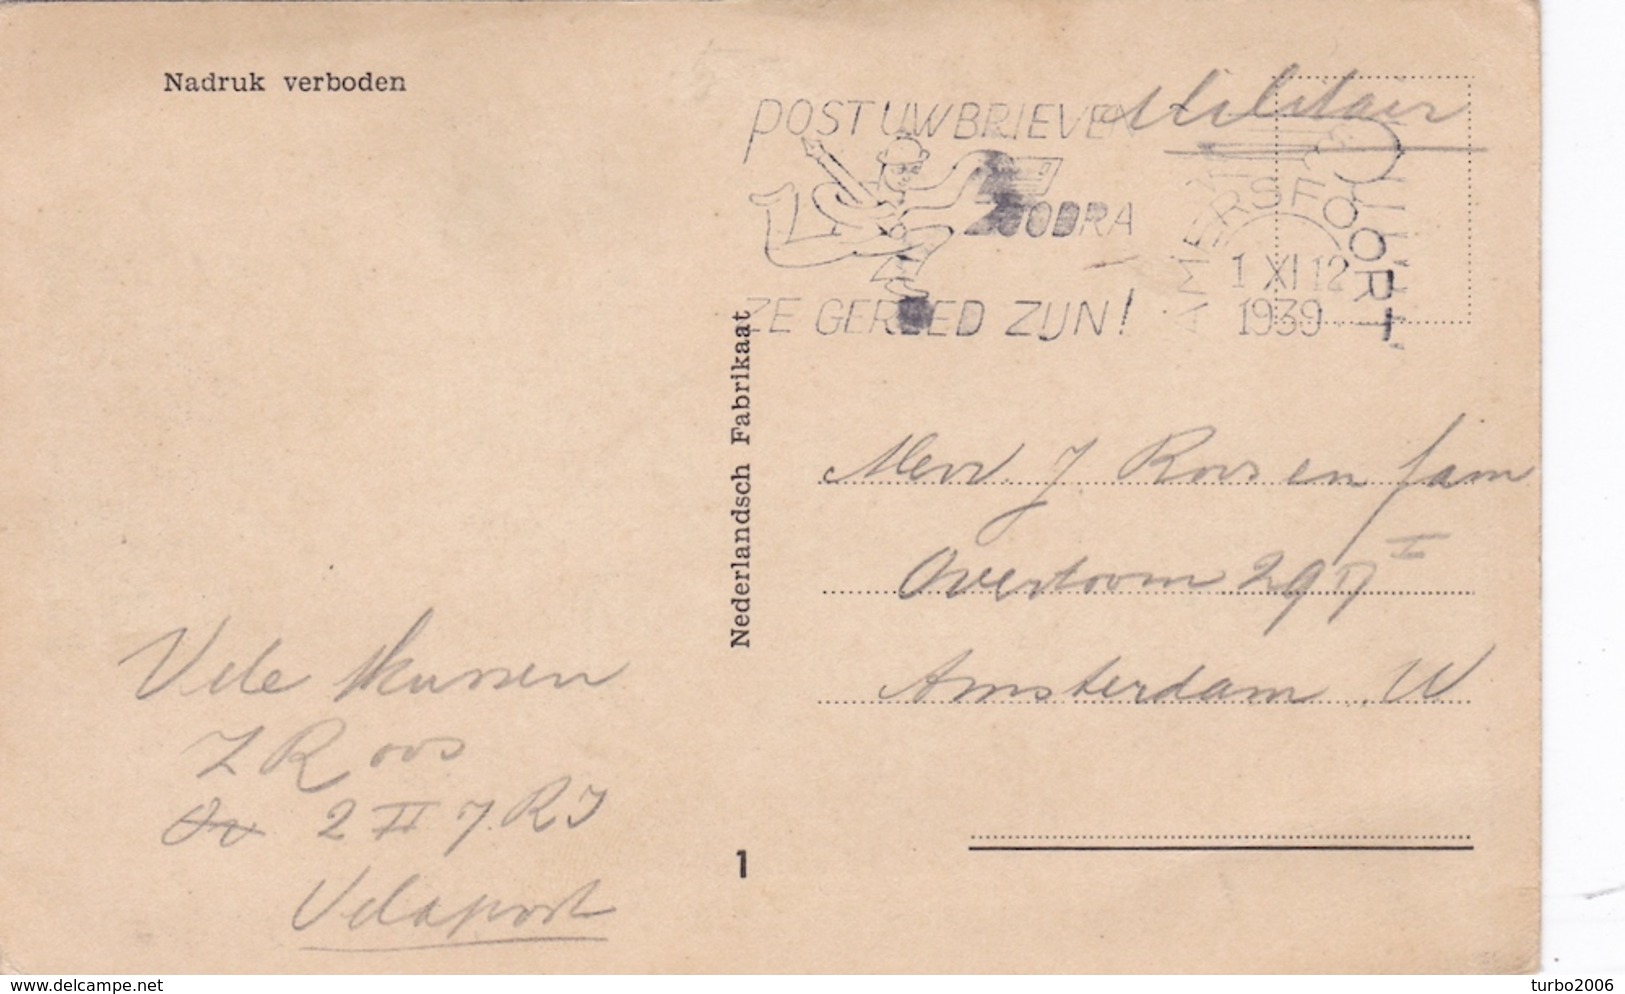 Nadruk verboden
POST UW BRIEVEN
ZOODRA
ZE GEREED ZIJN!
AMERSFOORT
1 XI 12
1939
Militair
Nederlandsch Fabrikaat
Mevr. J Roos en fam
Overtoom 297 I
Amsterdam W
Vele kussen
Z Roos
2 II 7. R I
Veldpost
1
delcampe.net
turbo2006